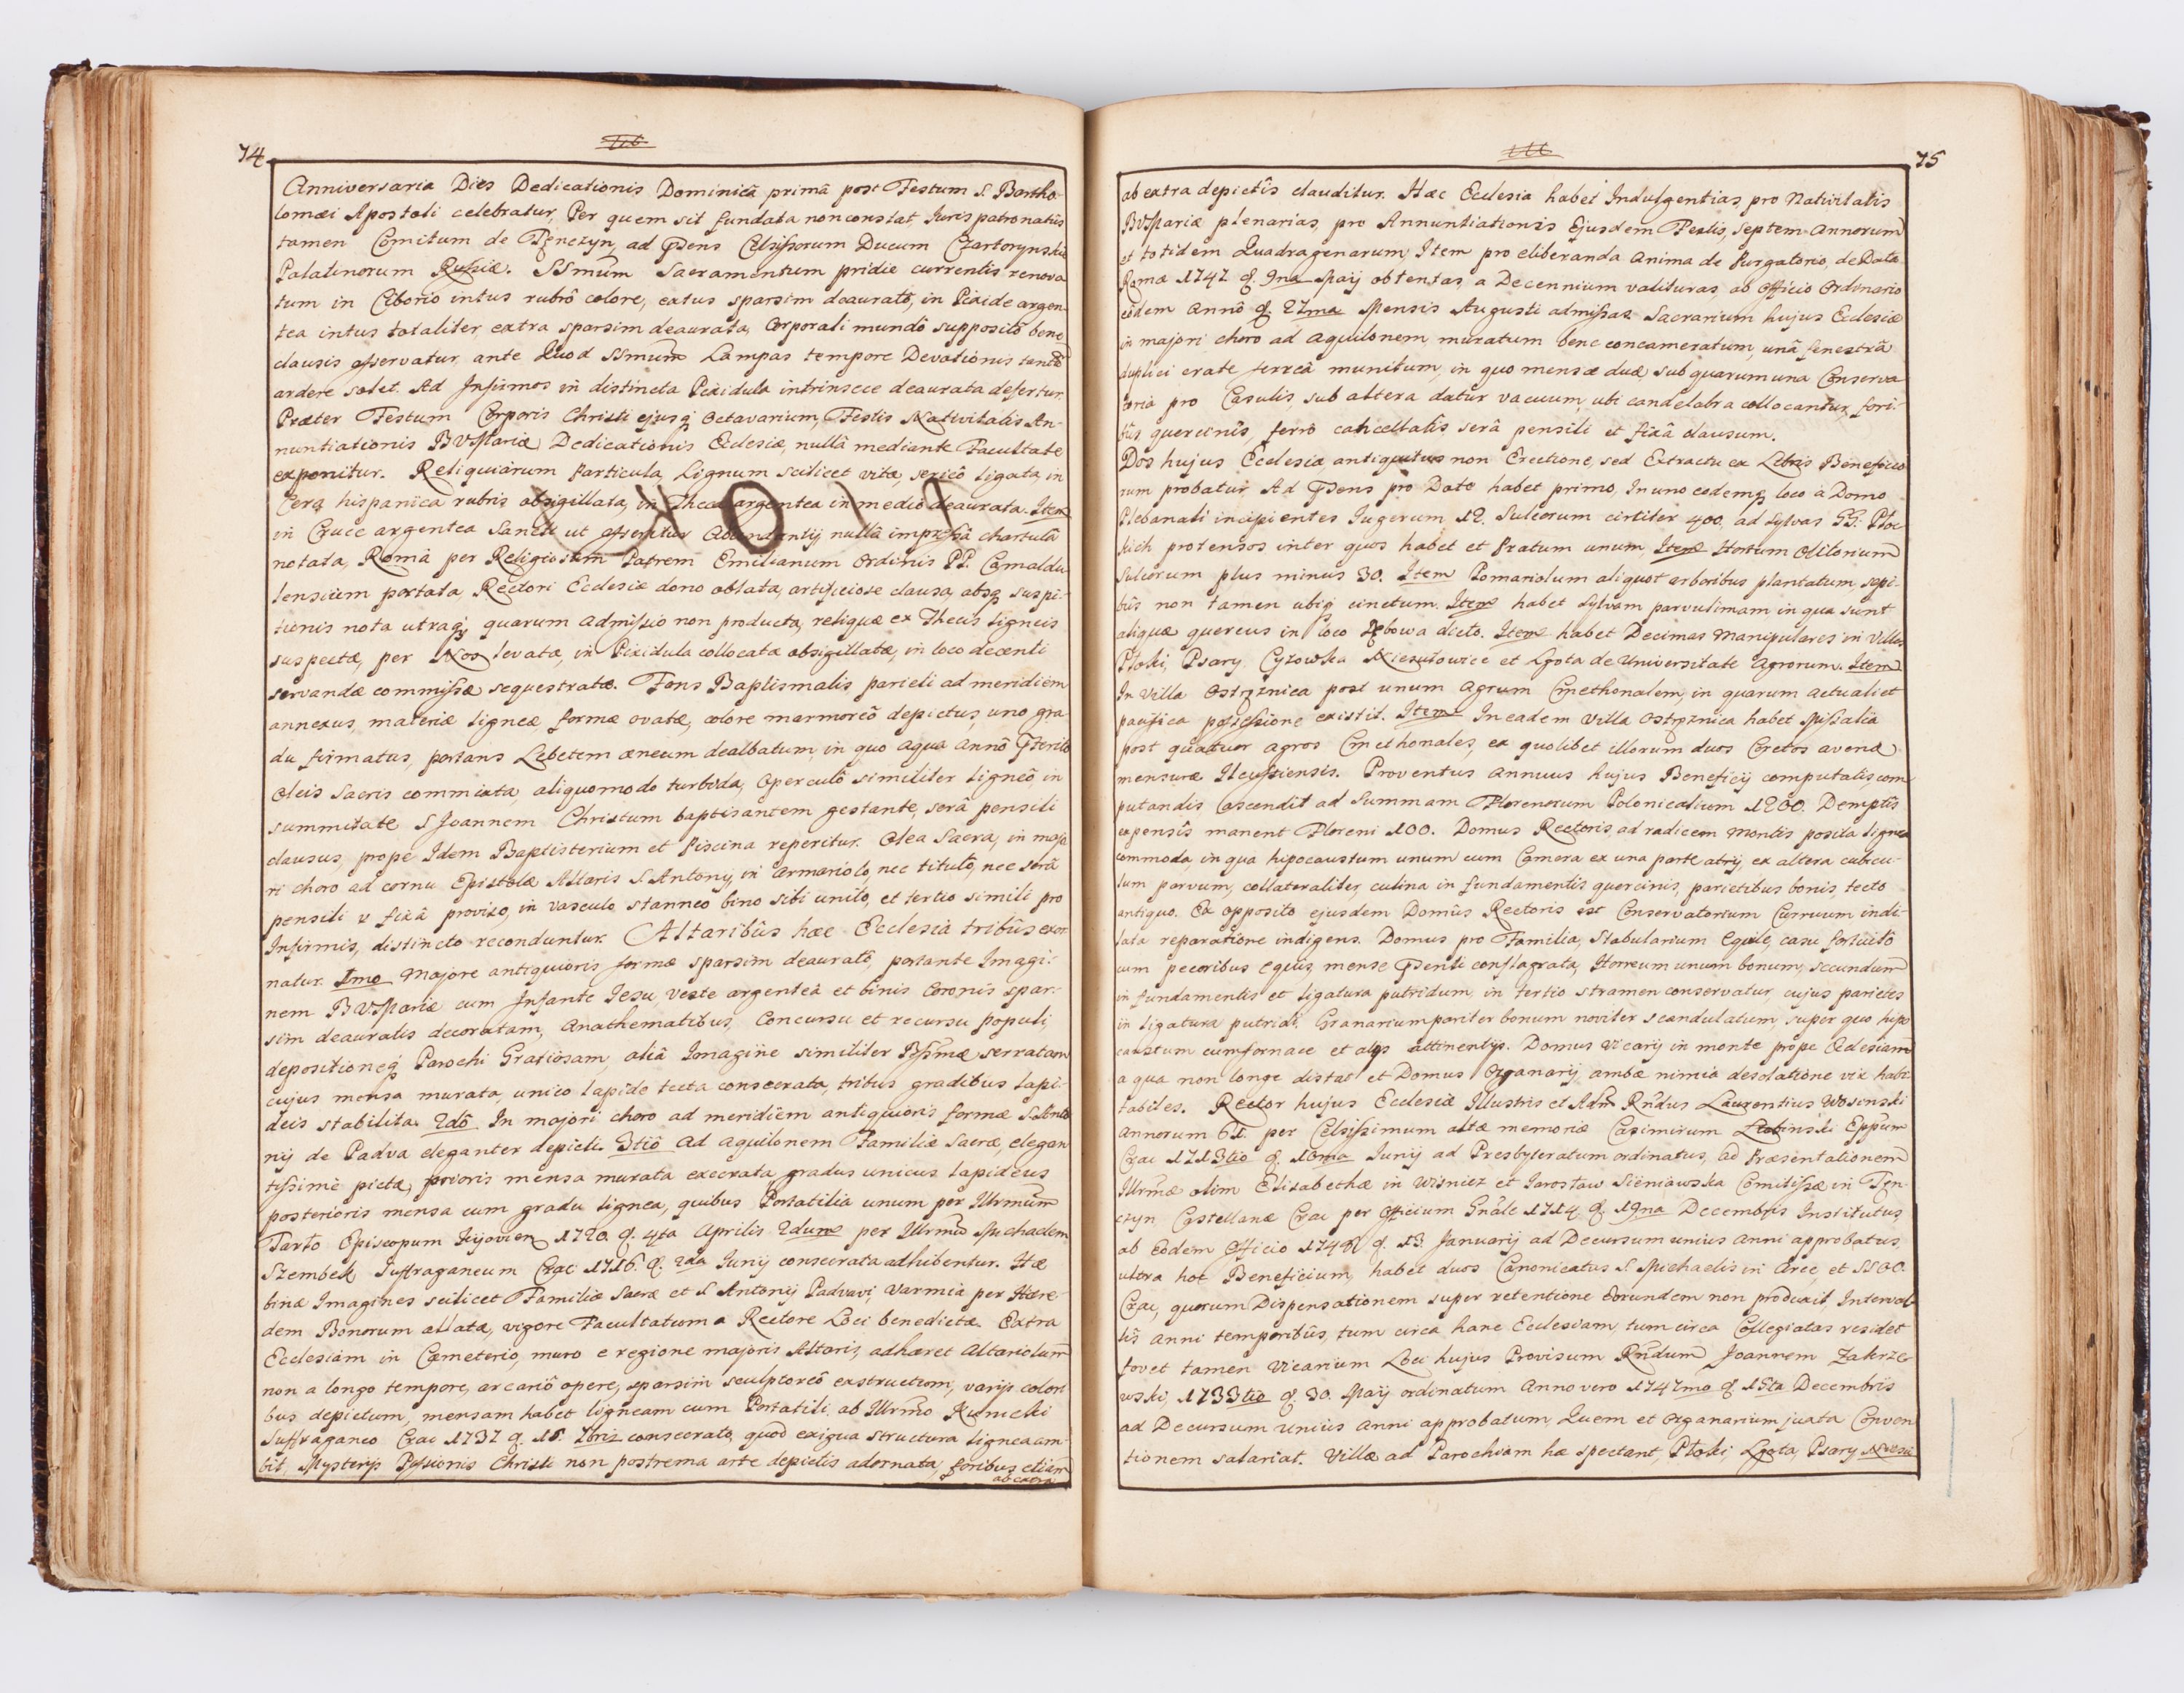 74
Anniversaria Dies Dedicationis Dominicâ primâ post Festum S. Bartho-
lomæi Apostoli celebratur, Per quem sit fundata non constat, Iuris patronatûs
tamen Comitum de Tęnczyn, ad Celsissorum Ducum Czartoryński
Palatinorum Russiæ. SSmum Sacramentum pridie currentis renova
tum in Ciborio intus rubrô colore, extus sparsim deauratô, in Pixide argen-
tea intus totaliter, extra sparsim deaurata, Corporali mundô suppositô bene
clausis asservatur, ante Quod SSmum Lampas tempore Devotionis
ardere solet. Ad Infirmos in distincta Pixidula intrinsece deaurata defertur.
Præter Festum Corporis Christi ejusq Octavarium, Festis Nativitatis An-
nuntiationis BVMariæ Dedicationis Ecclesiæ, nullâ mediante Facultate
exponitur. Reliquiarum Particula, Lignum scilicet vitæ, sericô ligata, in
Cera hispanica rubris obsigillata, in Theca argentea in medio deaurata. Item
in Cruce argentea Sancti ut asseritur Abundantij nullâ impressâ chartulâ
notata, Româ per Religiosum Patrem Emilianum Ordinis PP. Camaldu
lensium portata, Rectori Ecclesiæ dono oblata, artificiose clausa, absq suspi-
tionis nota utraq, quarum admissio non producta, reliquæ ex Thecis ligneis
suspectæ, per Nos levatæ, in Pixidula collocatæ obsigillatæ, in loco decenti
servandæ commissæ sequestratæ. Fons Baptismalis parieti ad meridiem
annexus, materiæ ligneæ, formæ ovatæ, colore marmoreô depictus, uno gra
du firmatus, portans Lebetem æneum dealbatum, in quo aqua annô
Oleis Sacris commixta, aliquomodo turbida, Operculô similiter ligneô, in
summitate S Joannem Christum baptisantem gestante, serâ pensili
clausus, prope Idem Baptisterium et Piscina reperitur. Olea Sacra, in majo
ri choro ad cornu Epistolæ Altaris S. Antonij, in armariolo, nec titulô, nec serâ
pensili v fixâ proviso, in vasculo stanneo bino sibi unito, et tertio simili pro
Infirmis, distincto reconduntur. Altaribûs hæc Ecclesia tribûs exor
natur. Imo Majore antiquioris formæ sparsim deauratô, portante Imagi-
nem BVMariæ cum Infante Iesu, veste argenteâ et binis Coronis spar-
sim deauratis decoratam, Anathematibus, Concursu et recursu Populi,
depositioneq Parochi Gratiosam, aliâ Imagine similiter Bssmæ serratam
cujus mensa murata, unico lapide tecta consecrata, tribus gradibus lapi-
deis stabilita. 2dô In majori choro ad meridiem antiquioris formæ S. Anto
nij de Padva eleganter depicti. 3tiô ad aquilonem Familiæ Sacræ, elegan
tissime pictæ, prioris mensa murata execrata, gradus unicus lapideus
posterioris mensa cum gradu lignea, quibus Portatilia unum per Illrmum
Tarło Episcopum Kijovien 1720. d. 4ta Aprilis 2dum per Illrmum Michaelem
Szembek Suffraganeum Crac 1716. d. 2da Iunij consecrata adhibentur. Hæ
binæ Imagines scilicet Familiæ Sacræ et S Antonij Padvavi, Varmia per Hære-
dem Bonorum allatæ, vigore Facultatum a Rectore Loci benedictæ. Extra
Ecclesiam in Cæmeterio, muro e regione majoris Altaris, adhæret Altariolum
non a longo tempore, arcariô opere, sparsim sculptoreô exstructum, varijs colori
bus depictum, mensam habet ligneam cum Portatili, ab Illrmo Kunicki
Suffraganeo Crac 1737 d. 15. 7bris consecrato, quod exigua structura lignea am-
bit, Mysterijs Passionis Christi non postrema arte depictis adornata, foribus etiam
ab extra
75
ab extra depictîs clauditur. Hæc Ecclesia habet Indulgentias, pro Nativitatis
BVMariæ plenarias, pro Annuntiationis Ejusdem Festis, septem Annorum
et totidem Quadragenarum, Item pro eliberanda Anima de Purgatorio, de Data
Romæ 1747 d. 9na Maij obtentas, a Decennium valituras, ab Officio Ordinario
eôdem annô d. 27ma Mensis Augusti admissas. Sacrarium hujus Ecclesiæ
in majori choro ad aquilonem muratum bene concameratum, unâ fenestrâ
duplici crate ferreâ munitum, in quo mensæ duæ, sub quarum una Conserva
toria pro Casulis sub altera datur vacuum, ubi candelabra collocantur, fori-
bûs quercinîs, ferrô cancellatîs serâ pensili et fixâ clausum.
Dos hujus Ecclesiæ, antiquitus non Erectione, sed Extractu ex Libris Beneficio
rum probatur. Ad pro Dote habet primo, In uno eodemq loco a Domo
Plebanali incipientes Iugerum 12. Sulcorum circiter 400. ad sylvas GG. Płoc
kich protensos inter quos habet et Pratum unum, Item Hortum Olitorium
Sulcorum plus minus 30. Item Pomariolum aliquot arboribus plantatum, sæpi-
bûs non tamen ubiq cinctum. Item habet sylvam parvulimam in qua sunt
aliquæ quercus in loco Dębowa dicto. Item habet Decimas Manipulares in Villis
Płoki, Psary, Czyzowka Niesułowice et Lgota de Universitate Agrorum. Item
In Villa Ostrężnica post unum Agrum Cmethonalem, in quarum actuali et
pacifica possessione existit. Item In eadem Villa Ostrężnica habet Missalia
post quatuor agros Cmethonales, ex quolibet illorum duos Coretos avenæ
mensuræ Ilcussiensis. Proventus annuus hujus Beneficij computatis com
putandis ascendit ad Summam Florenorum Polonicalium 1200. Demptîs
expensîs manent Floreni 100. Domus Rectoris, ad radicem montis posita lignea
commoda, in qua hipocaustum unum cum Camera ex una parte atrij, ex altera cubicu-
lum parvum, collateraliter, culina in fundamentis quercinis, parietibus bonis, tecto
antiquo. Ex opposito ejusdem Domûs Rectoris est Conservatorium Curruum indi-
lata reparatione indigens. Domus pro Familia, Stabularium Equile, casu fortuitô
cum pecoribus equis, mense conflagrata, Horreum unum bonum, secundum
in fundamentis et ligatura putridum, in tertio stramen conservatur, cujus parietes
in ligatura putridi. Granarium pariter bonum noviter scandulatum, super quo hipo
caustum cum fornace et alijs attinentijs. Domus Vicarij in monte prope Ecclesiam
a qua non longe distat et Domus Organarij ambæ nimia desolatione vix habi-
tabiles. Rector hujus Ecclesiæ Illustris et Adm Rndus Laurentius Wosinski
annorum 61. per Celsissimum altæ memoriæ Casimirum Łubinski Eppum
Crac 1713tio d. 10ma Iunij ad Presbyteratum ordinatus, ad Præsentationem
Illrmæ olim Elisabethæ in Wisnicz et Iarosław Sieniawska Comitissæ in Ten-
czyn, Castellanæ Crac per Officium Gnâle 1714 d. 19na Decembris Institutus
ab Eodem Officio d. 13. Januarij ad Decursum unius anni approbatus,
ultra hoc Beneficium, habet duos Canonicatus S. Michaelis in Arce, et SSOO.
Crac, quorum Dispensationem super retentione Eorundem non produxit, Interval-
lis anni temporibûs, tum circa hanc Ecclesiam, tum circa Collegiatas residet
fovet tamen Vicarium Loci hujus Provisum Rndum Joannem Zakrze-
wski, 1733tio d. 30. Maij ordinatum Anno vero 1747mo d 15ta Decembris
ad Decursum unius anni approbatum, Quem et Organarium juxta Conven
tionem salariat. Villæ ad Parochiam hæ spectant, Płoki, Lgota, Psary Niesu